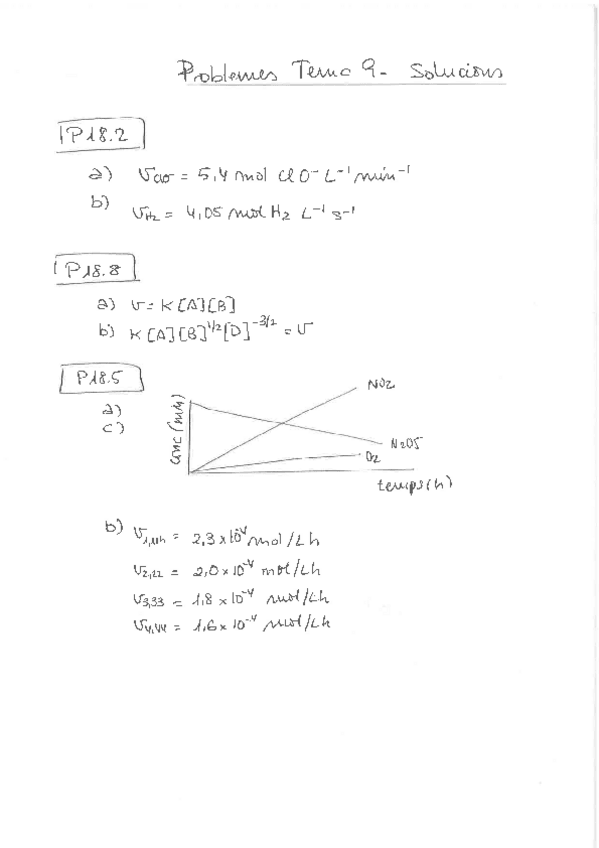 Problemes Tema 9- Solucions
P18.2
a) VClO = 5,4 mol ClO⁻ L⁻¹ min⁻¹
b) VH2 = 4,05 mol H2 L⁻¹ s⁻¹
P18.8
a) v = K[A][B]
b) K[A][B]^1/2[D]^-3/2 = v
P18.5
a)
c)
conc (mM)
NO2
N2O5
O2
temps(h)
b) V1,11h = 2,3 x 10⁻⁴ mol/Lh
V2,22 = 2,0 x 10⁻⁴ mol/Lh
V3,33 = 1,8 x 10⁻⁴ mol/Lh
V4,44 = 1,6 x 10⁻⁴ mol/Lh